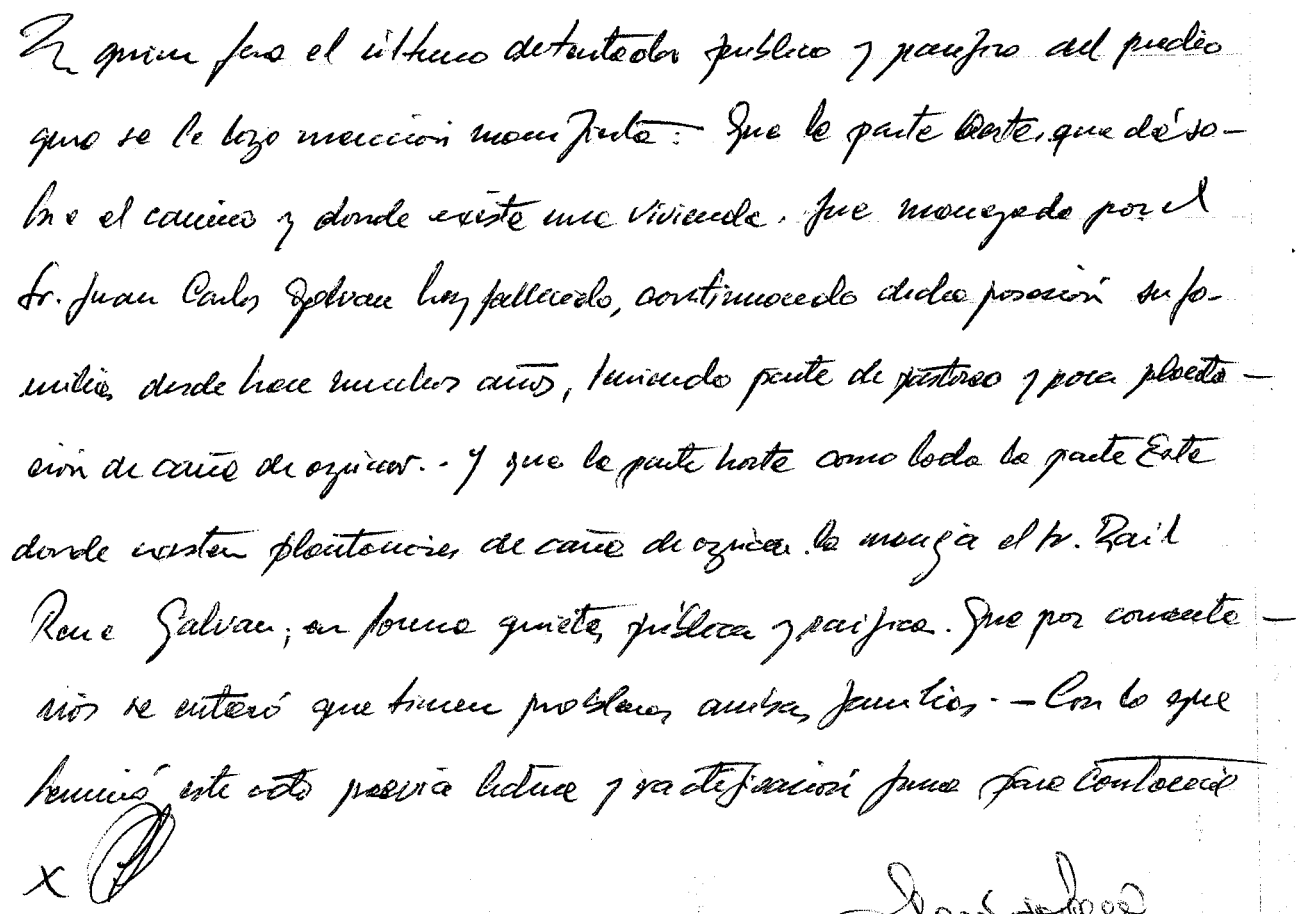 quien fue el último detentador público y pacífico del predio
que se le hizo mención manifiesta: Que la parte Oeste, que dá so-
bre el camino y donde existe una vivienda. fue manejado por el
Sr. Juan Carlos Galvan hoy fallecido, continuando dicha posesión su fa-
milia desde hace muchos años, teniendo parte de pastoreo y poca planta-
ción de caña de azúcar.- Y que la parte norte como toda la parte Este
donde existen plantaciones de caña de azúcar la maneja el Sr. Raúl
Rene Galvan; en forma quieta, pública y pacifica. Que por comenta-
rios se enteró que tienen problemas ambas familias.- Con lo que
terminó este acto previa lectura y ratificación firma para constancia
x